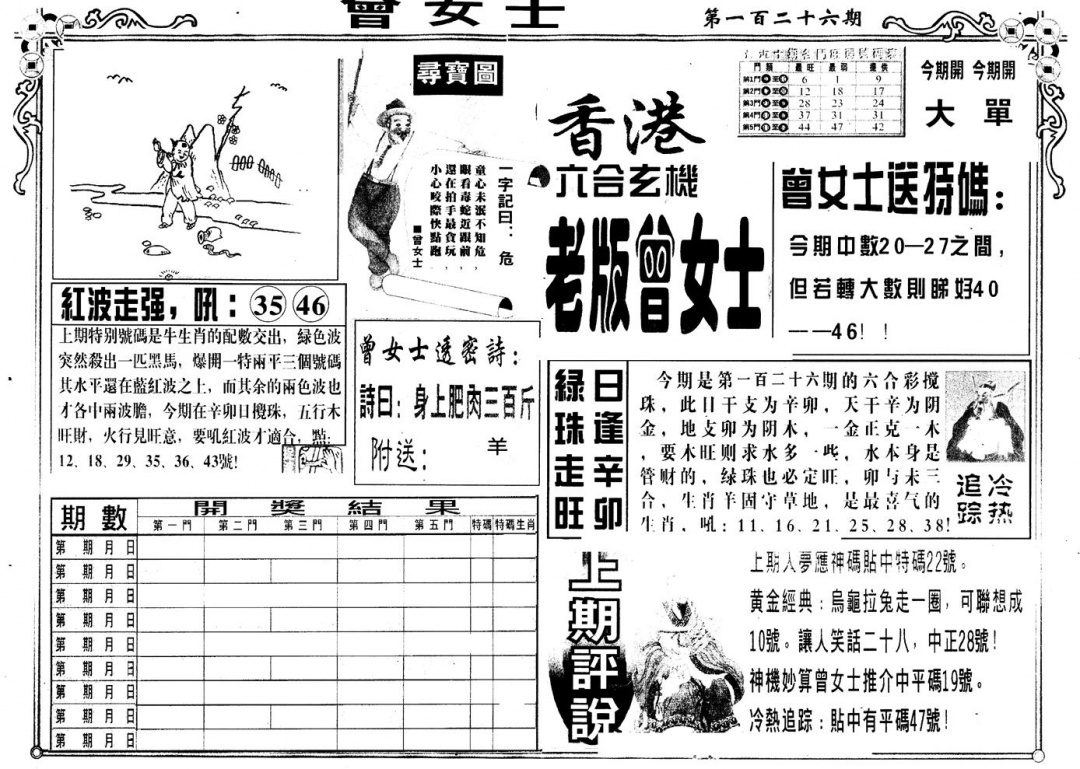 曾女士
第一百二十六期
尋寶圖
一字記曰：危
童心未泯不知危，
眼看毒蛇近跟前，
還在拍手最貪玩，
小心咬際快點跑。
■曾女士
香港
六合玄機
老版曾女士
門類 最旺 最弱 提供
第1門 至 6 1 9
第2門 至 12 18 17
第3門 至 28 23 24
第4門 至 37 31 31
第5門 至 44 47 42
今期開 今期開
大 單
曾女士送特碼：
今期中數20—27之間，
但若轉大數則睇好40
——46！！
紅波走强，吼：35 46
上期特别號碼是牛生肖的配數交出，綠色波
突然殺出一匹黑馬，爆開一特兩平三個號碼
其水平還在藍紅波之上，而其余的兩色波也
才各中兩波膽，今期在辛卯日攪珠，五行木
旺財，火行見旺意，要吼紅波才適合，點：
12、18、29、35、36、43號!
曾女士透密詩：
詩曰：身上肥肉三百斤
附送： 羊
綠珠走旺
日逢辛卯
今期是第一百二十六期的六合彩搅
珠，此日干支为辛卯，天干辛为阴
金，地支卯为阴木，一金正克一木
，要木旺则求水多一些，水本身是
管财的，绿珠也必定旺，卯与未三
合，生肖羊固守草地，是最喜气的
生肖，吼：11、16、21、25、28、38!
冷热
追踪
期數 開獎結果
第一門 第二門 第三門 第四門 第五門 特碼 特碼生肖
第 期 月 日
第 期 月 日
第 期 月 日
第 期 月 日
第 期 月 日
第 期 月 日
第 期 月 日
第 期 月 日
第 期 月 日
上期評說
上期人夢應神碼貼中特碼22號。
黃金經典：烏龜拉兔走一圈，可聯想成
10號。讓人笑話二十八，中正28號!
神機妙算曾女士推介中平碼19號。
冷熱追踪：貼中有平碼47號!